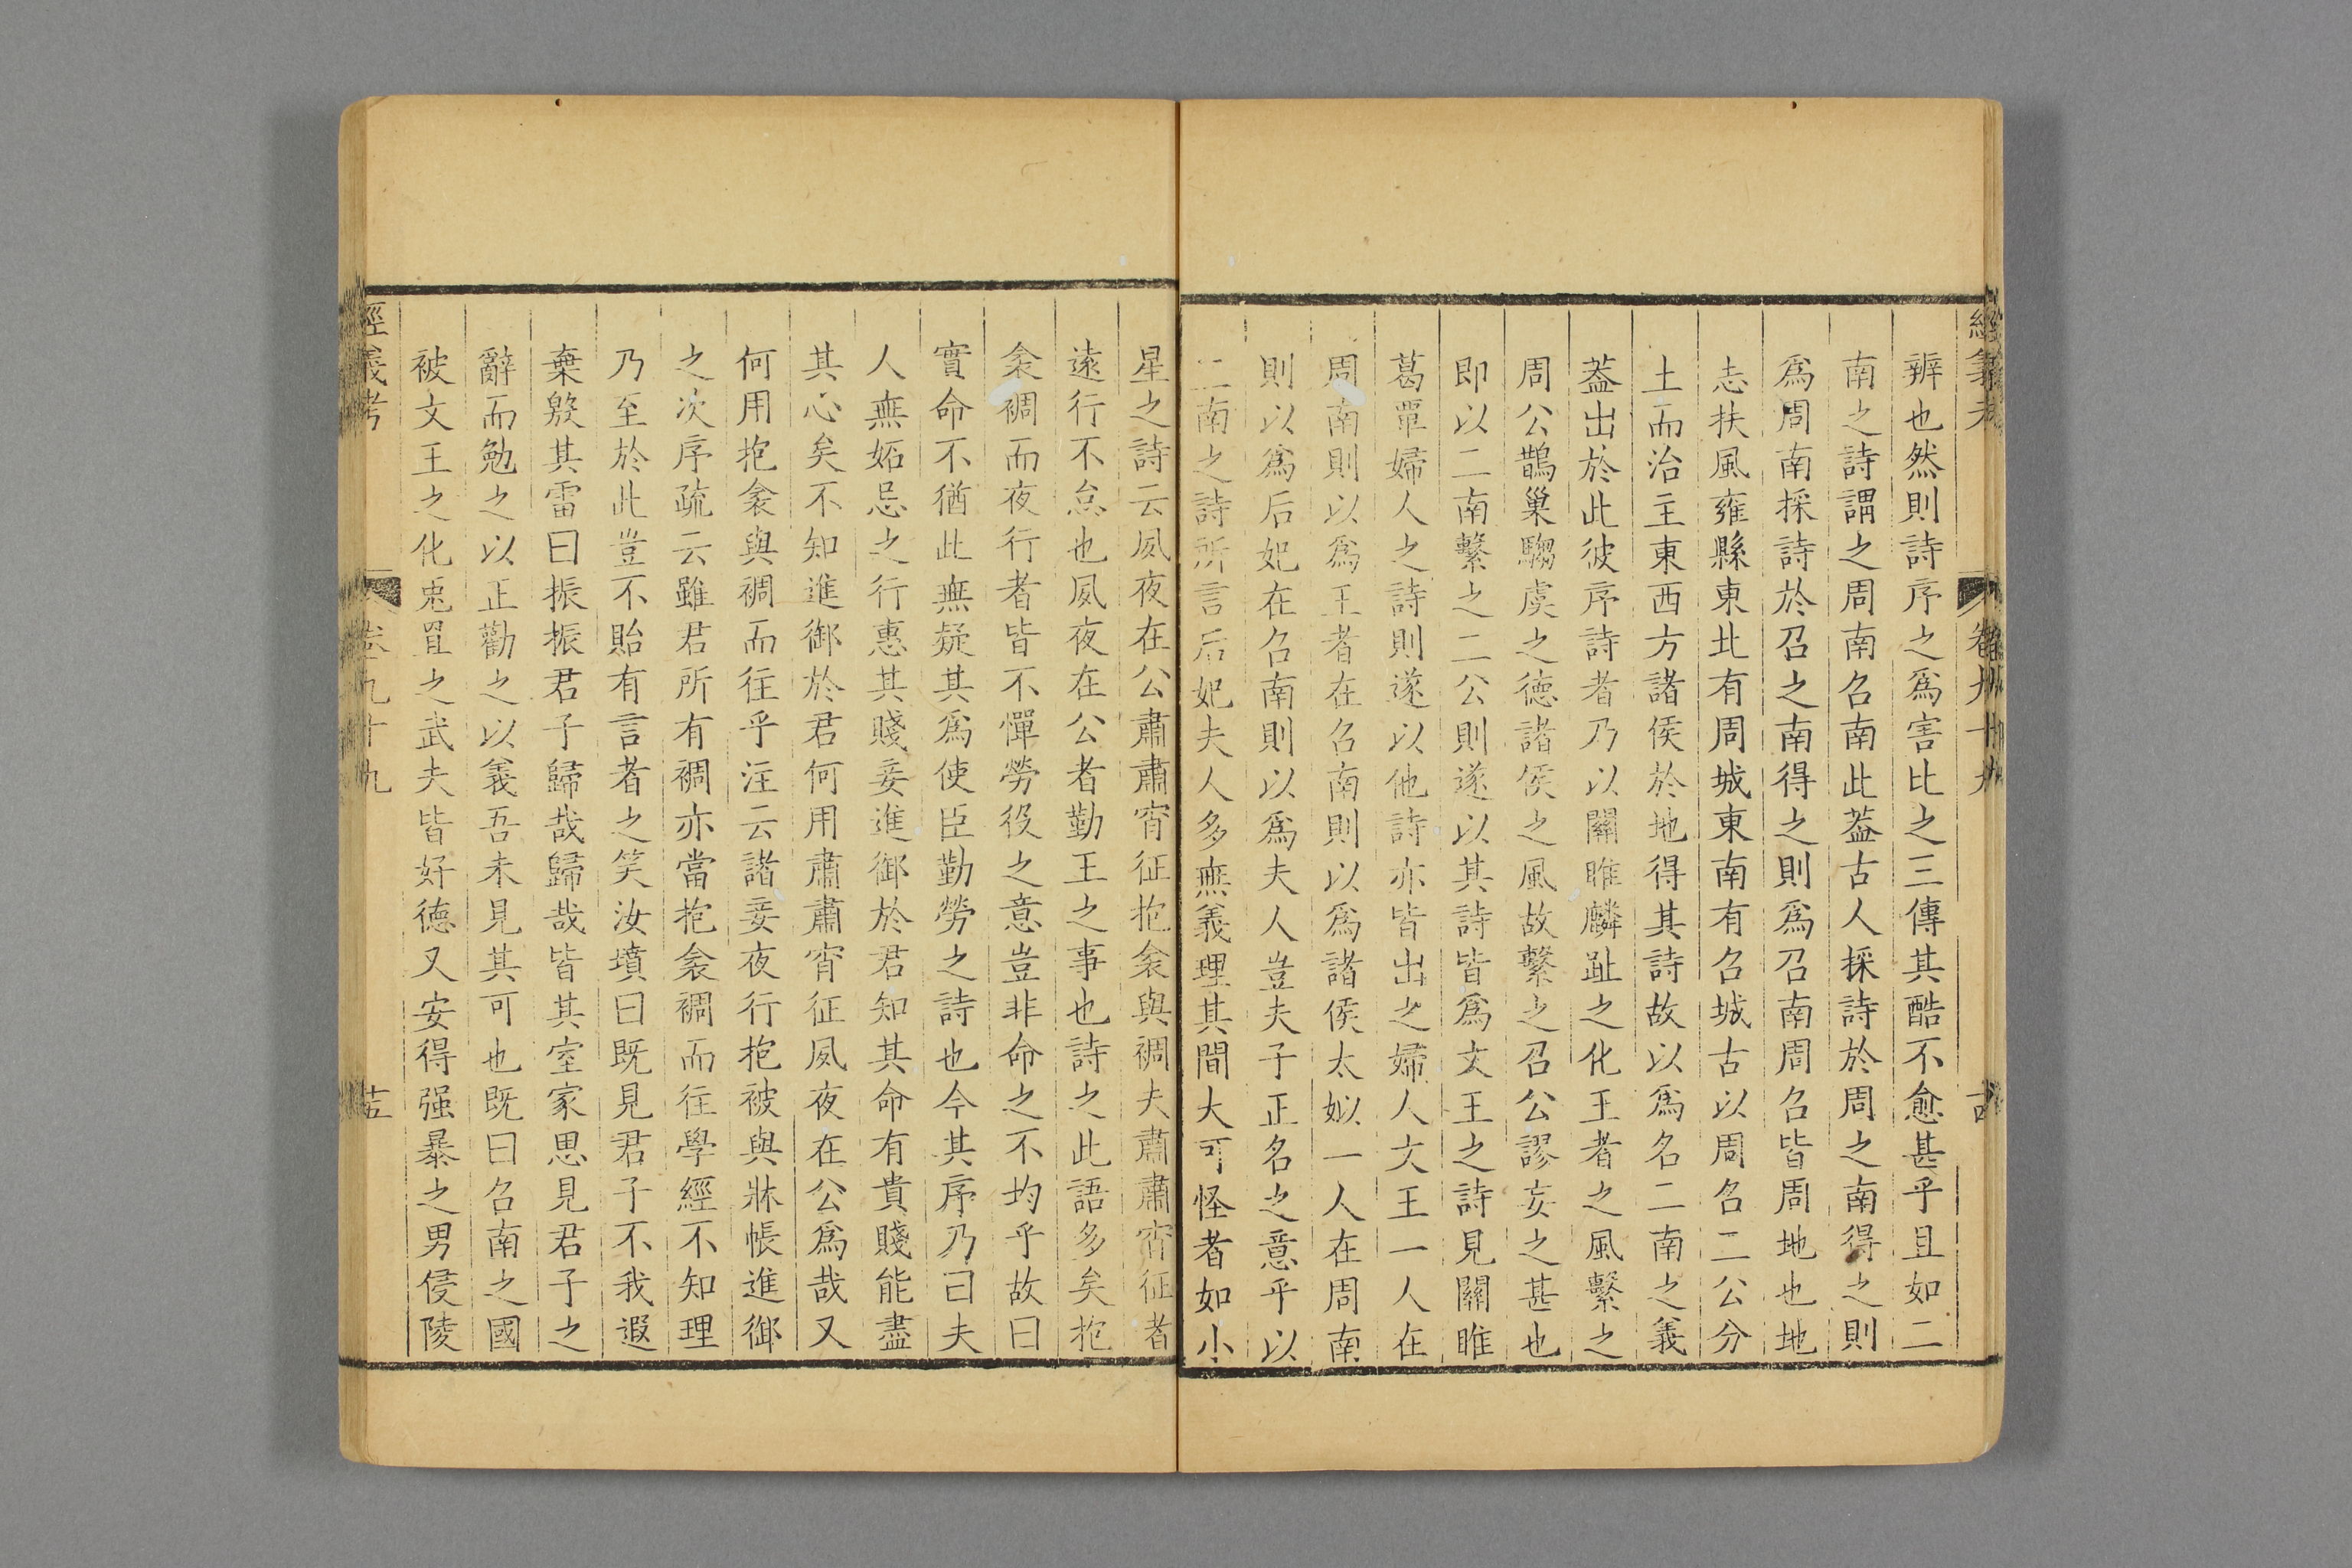 經義考
卷九十九
辨也然則詩序之爲害比之三傳其酷不愈甚乎且如二
南之詩謂之周南召南此葢古人採詩於周之南得之則
爲周南採詩於召之南得之則爲召南周召皆周地也地
志扶風雍縣東北有周城東南有召城古以周召二公分
土而治主東西方諸侯於地得其詩故以爲名二南之義
葢出於此彼序詩者乃以關雎麟趾之化王者之風繫之
周公鵲巢騶虞之德諸侯之風故繫之召公謬妄之甚也
即以二南繫之二公則遂以其詩皆爲文王之詩見關雎
葛覃婦人之詩則遂以他詩亦皆出之婦人文王一人在
周南則以爲王者在召南則以爲諸侯太姒一人在周南
則以爲后妃在召南則以爲夫人豈夫子正名之意乎以
二南之詩所言后妃夫人多無義理其間大可怪者如小
星之詩云夙夜在公肅肅宵征抱衾與裯夫肅肅宵征者
遠行不怠也夙夜在公者勤王之事也詩之此語多矣抱
衾裯而夜行者皆不憚勞役之意豈非命之不均乎故曰
實命不猶此無疑其爲使臣勤勞之詩也今其序乃曰夫
人無妬忌之行惠其賤妾進御於君知其命有貴賤能盡
其心矣不知進御於君何用肅肅宵征夙夜在公爲哉又
何用抱衾與裯而往乎注云諸妾夜行抱被與牀帳進御
之次序疏云雖君所有裯亦當抱衾裯而往學經不知理
乃至於此豈不貽有言者之笑汝墳曰既見君子不我遐
棄殷其雷曰振振君子歸哉歸哉皆其室家思見君子之
辭而勉之以正勸之以義吾未見其可也既曰召南之國
被文王之化兎罝之武夫皆好德又安得强暴之男侵陵
經義考
卷九十九